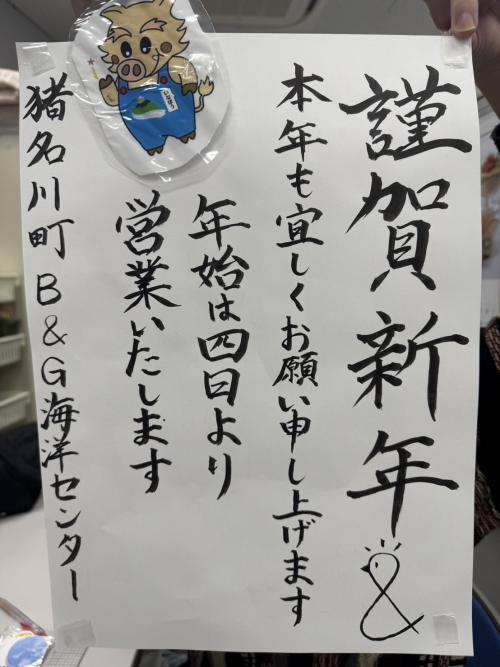 謹賀新年
本年も宜しくお願い申し上げます
年始は四日より
営業いたします
猪名川町 B&G海洋センター